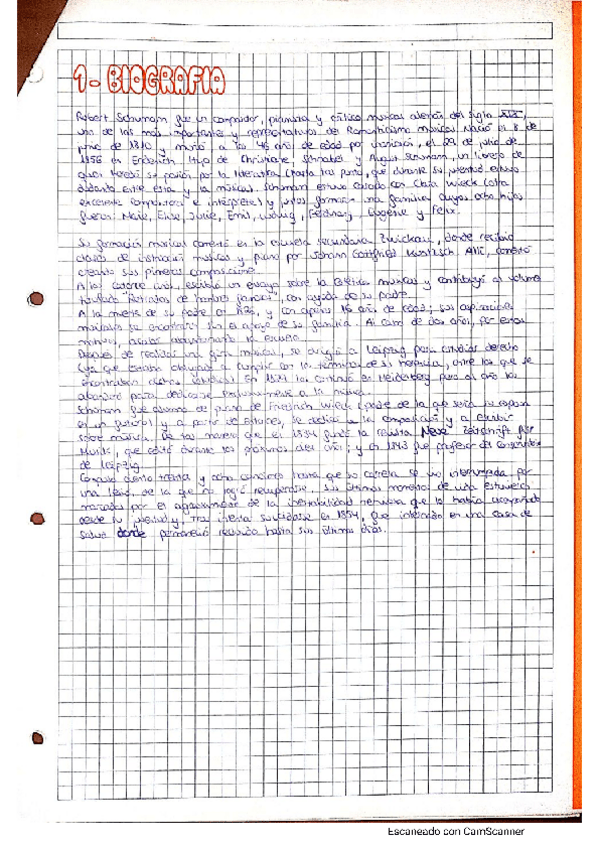 1- BIOGRAFIA
Robert Schumann fue un compositor, pianista y crítico musical alemán del siglo XIX,
uno de los más importantes y representativos del Romanticismo musical. Nació el 8 de
junio de 1810 y murió a los 46 años de edad por inanición, el 29 de julio de
1856 en Endenich. Hijo de Christiane Schnabel y August Schumann, un librero de
quien heredó su pasión por la literatura (hasta tal punto, que durante su juventud estuvo
dudando entre ésta y la música). Schumann estuvo casado con Clara Wieck (otra
excelente compositora e intérprete) y juntos formaron una familia cuyos ocho hijos
fueron: Marie, Elise, Julie, Emil, Ludwig, Ferdinand, Eugénie y Felix.
Su formación musical comenzó en la escuela secundaria Zwickau, donde recibió
clases de instrucción musical y piano por Johann Gottfried Kuntzsch. Allí, comenzó
creando sus primeras composiciones.
A los catorce años, escribió un ensayo sobre la estética musical y contribuyó al volumen
titulado "Retratos de hombres famosos", con ayuda de su padre.
A la muerte de su padre en 1826, y con apenas 16 años de edad; sus aspiraciones
musicales se encontraron sin el apoyo de su familia. Al cabo de dos años, por estos
motivos, acabó abandonando la escuela.
Después de realizar una gira musical, se dirigió a Leipzig para estudiar derecho
(ya que estaba obligado a cumplir con los términos de su herencia, entre los que se
encontraban dichos estudios). En 1829 los continuó en Heidelberg pero al año los
abandonó para dedicarse exclusivamente a la música.
Schumann fue alumno de piano de Friedrich Wieck (padre de la que sería su esposa
en un futuro) y a partir de entonces, se dedicó a la composición y a escribir
sobre música. De tal manera que el 1834 fundó la revista Neue Zeitschrift für
Musik, que editó durante los próximos diez años; y en 1843 fue profesor del conservatorio
de Leipzig.
Compuso ciento treinta y ocho canciones hasta que su carrera se vio interrumpida por
una de la que no logró recuperarse. Sus últimos momentos de vida estuvieron
marcados por el agravamiento de la inestabilidad nerviosa que lo había acompañado
desde su juventud y, tras intentar suicidarse en 1854, fue internado en una casa de
salud donde permaneció recluido hasta sus últimos días.
Escaneado con CamScanner